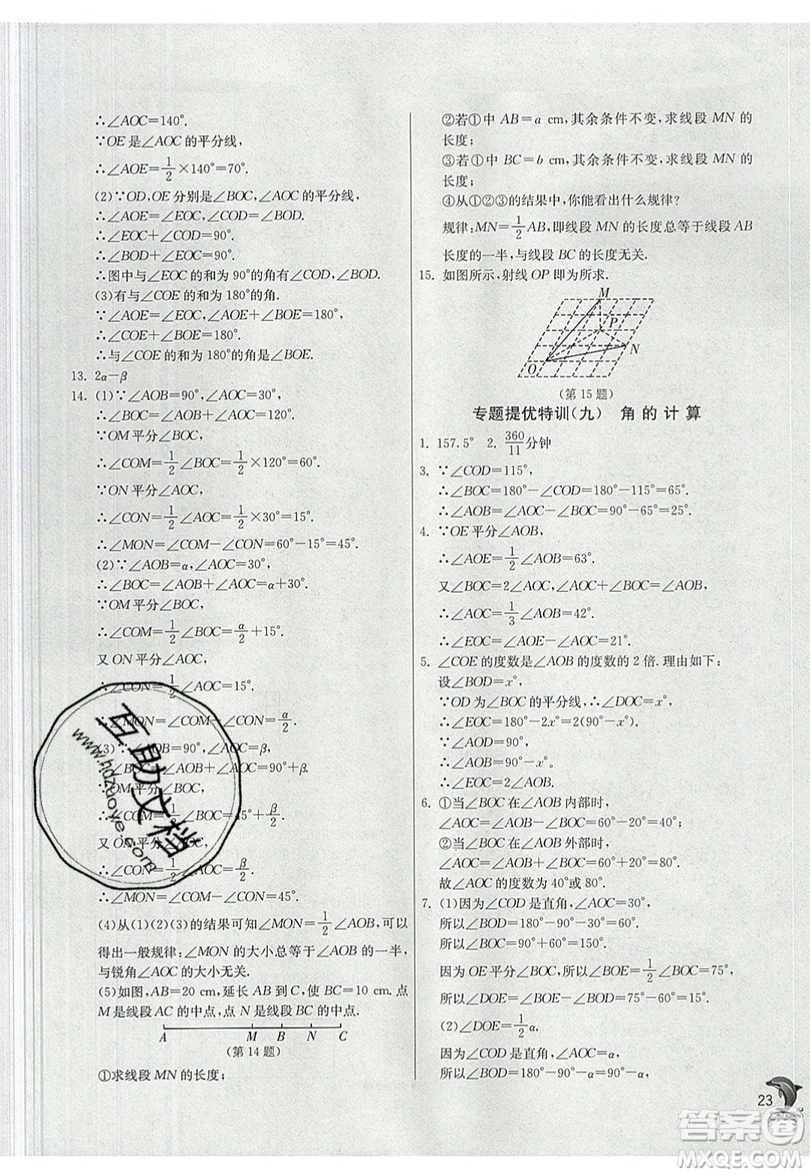 ∴∠AOC=140°.
∵OE是∠AOC的平分线,
∴∠AOE=1/2×140°=70°.
(2)∵OD,OE分别是∠BOC,∠AOC的平分线,
∴∠AOE=∠EOC,∠COD=∠BOD.
∴∠EOC+∠COD=90°.
∴图中与∠EOC的和为90°的角有∠COD,∠BOD.
(3)有与∠COE的和为180°的角.
∵∠AOE=∠EOC,∠AOE+∠BOE=180°,
∴∠COE+∠BOE=180°.
∴与∠COE的和为180°的角是∠BOE.
13. 2α-β
14. (1)∵∠AOB=90°,∠AOC=30°,
∴∠BOC=∠AOB+∠AOC=120°.
∵OM平分∠BOC,
∴∠COM=1/2∠BOC=1/2×120°=60°.
∵ON平分∠AOC,
∴∠CON=1/2∠AOC=1/2×30°=15°.
∴∠MON=∠COM-∠CON=60°-15°=45°.
(2)∵∠AOB=α,∠AOC=30°,
∴∠BOC=∠AOB+∠AOC=α+30°.
∵OM平分∠BOC,
∴∠COM=1/2∠BOC=α/2+15°.
又ON平分∠AOC,
∴∠CON=1/2∠AOC=15°.
∴∠MON=∠COM-∠CON=α/2.
(3)∵∠AOB=90°,∠AOC=β,
∴∠BOC=∠AOB+∠AOC=90°+β.
∵OM平分∠BOC,
∴∠COM=1/2∠BOC=45°+β/2.
又ON平分∠AOC,
∴∠CON=1/2∠AOC=β/2.
∴∠MON=∠COM-∠CON=45°.
(4)从(1)(2)(3)的结果可知∠MON=1/2∠AOB,可以
得出一般规律:∠MON的大小总等于∠AOB的一半,
与锐角∠AOC的大小无关.
(5)如图,AB=20 cm,延长AB到C,使BC=10 cm,点
M是线段AC的中点,点N是线段BC的中点.
A M B N C
(第14题)
①求线段MN的长度;
②若①中AB=a cm,其余条件不变,求线段MN的
长度;
③若①中BC=b cm,其余条件不变,求线段MN的
长度;
④从①②③的结果中,你能看出什么规律?
规律:MN=1/2AB,即线段MN的长度总等于线段AB
长度的一半,与线段BC的长度无关.
15. 如图所示,射线OP即为所求.
M
P
N
O
(第15题)
专题提优特训(九) 角的计算
1. 157.5° 2. 360/11分钟
3. ∵∠COD=115°,
∴∠BOC=180°-∠COD=180°-115°=65°.
∴∠AOB=∠AOC-∠BOC=90°-65°=25°.
4. ∵OE平分∠AOB,
∴∠AOE=1/2∠AOB=63°.
又∠BOC=2∠AOC,∠AOB=∠AOC+∠BOC,
∴∠AOC=1/3∠AOB=42°.
∴∠EOC=∠AOE-∠AOC=21°.
5. ∠COE的度数是∠AOB的度数的2倍. 理由如下:
设∠BOD=x°,
∵OD为∠BOC的平分线,∴∠DOC=x°.
∴∠EOC=180°-2x°=2(90°-x°).
又∠AOD=90°,
∴∠AOB=90°-x°.
∴∠EOC=2∠AOB.
6. ①当∠BOC在∠AOB内部时,
∠AOC=∠AOB-∠BOC=60°-20°=40°;
②当∠BOC在∠AOB外部时,
∠AOC=∠AOB+∠BOC=60°+20°=80°.
故∠AOC的度数为40°或80°.
7. (1)因为∠COD是直角,∠AOC=30°,
所以∠BOD=180°-90°-30°=60°.
所以∠COB=90°+60°=150°.
因为OE平分∠BOC,所以∠BOE=1/2∠BOC=75°.
所以∠DOE=∠BOE-∠BOD=75°-60°=15°.
(2)∠DOE=1/2α.
因为∠COD是直角,∠AOC=α,
所以∠BOD=180°-90°-α=90°-α.
23
互助文档
www.hdzuoye.com
答案圈
MXQE.COM